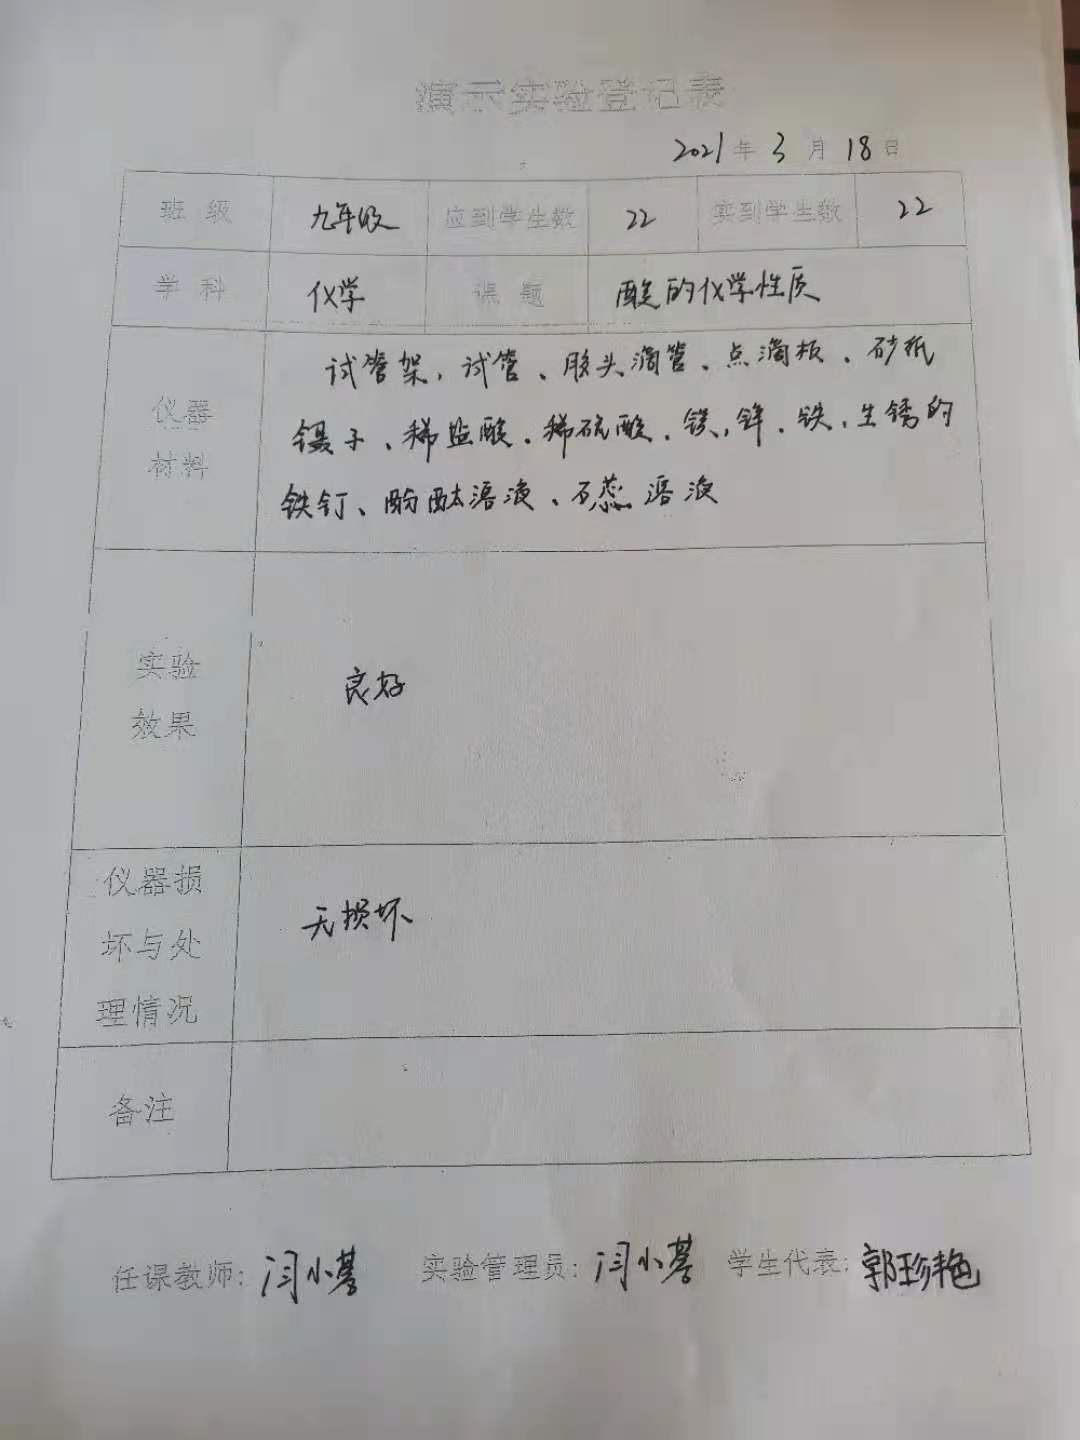 演示实验登记表
2021年3月18日
班级 九年级 应到学生数 22 实到学生数 22
学科 化学 课题 酸的化学性质
仪器材料
试管架、试管、胶头滴管、点滴板、砂纸
镊子、稀盐酸、稀硫酸、镁、锌、铁、生锈的
铁钉、酚酞溶液、石蕊溶液
实验
效果
良好
仪器损
坏与处
理情况
无损坏
备注
任课教师: 闫小 实验管理员: 闫小 学生代表: 郭珍艳